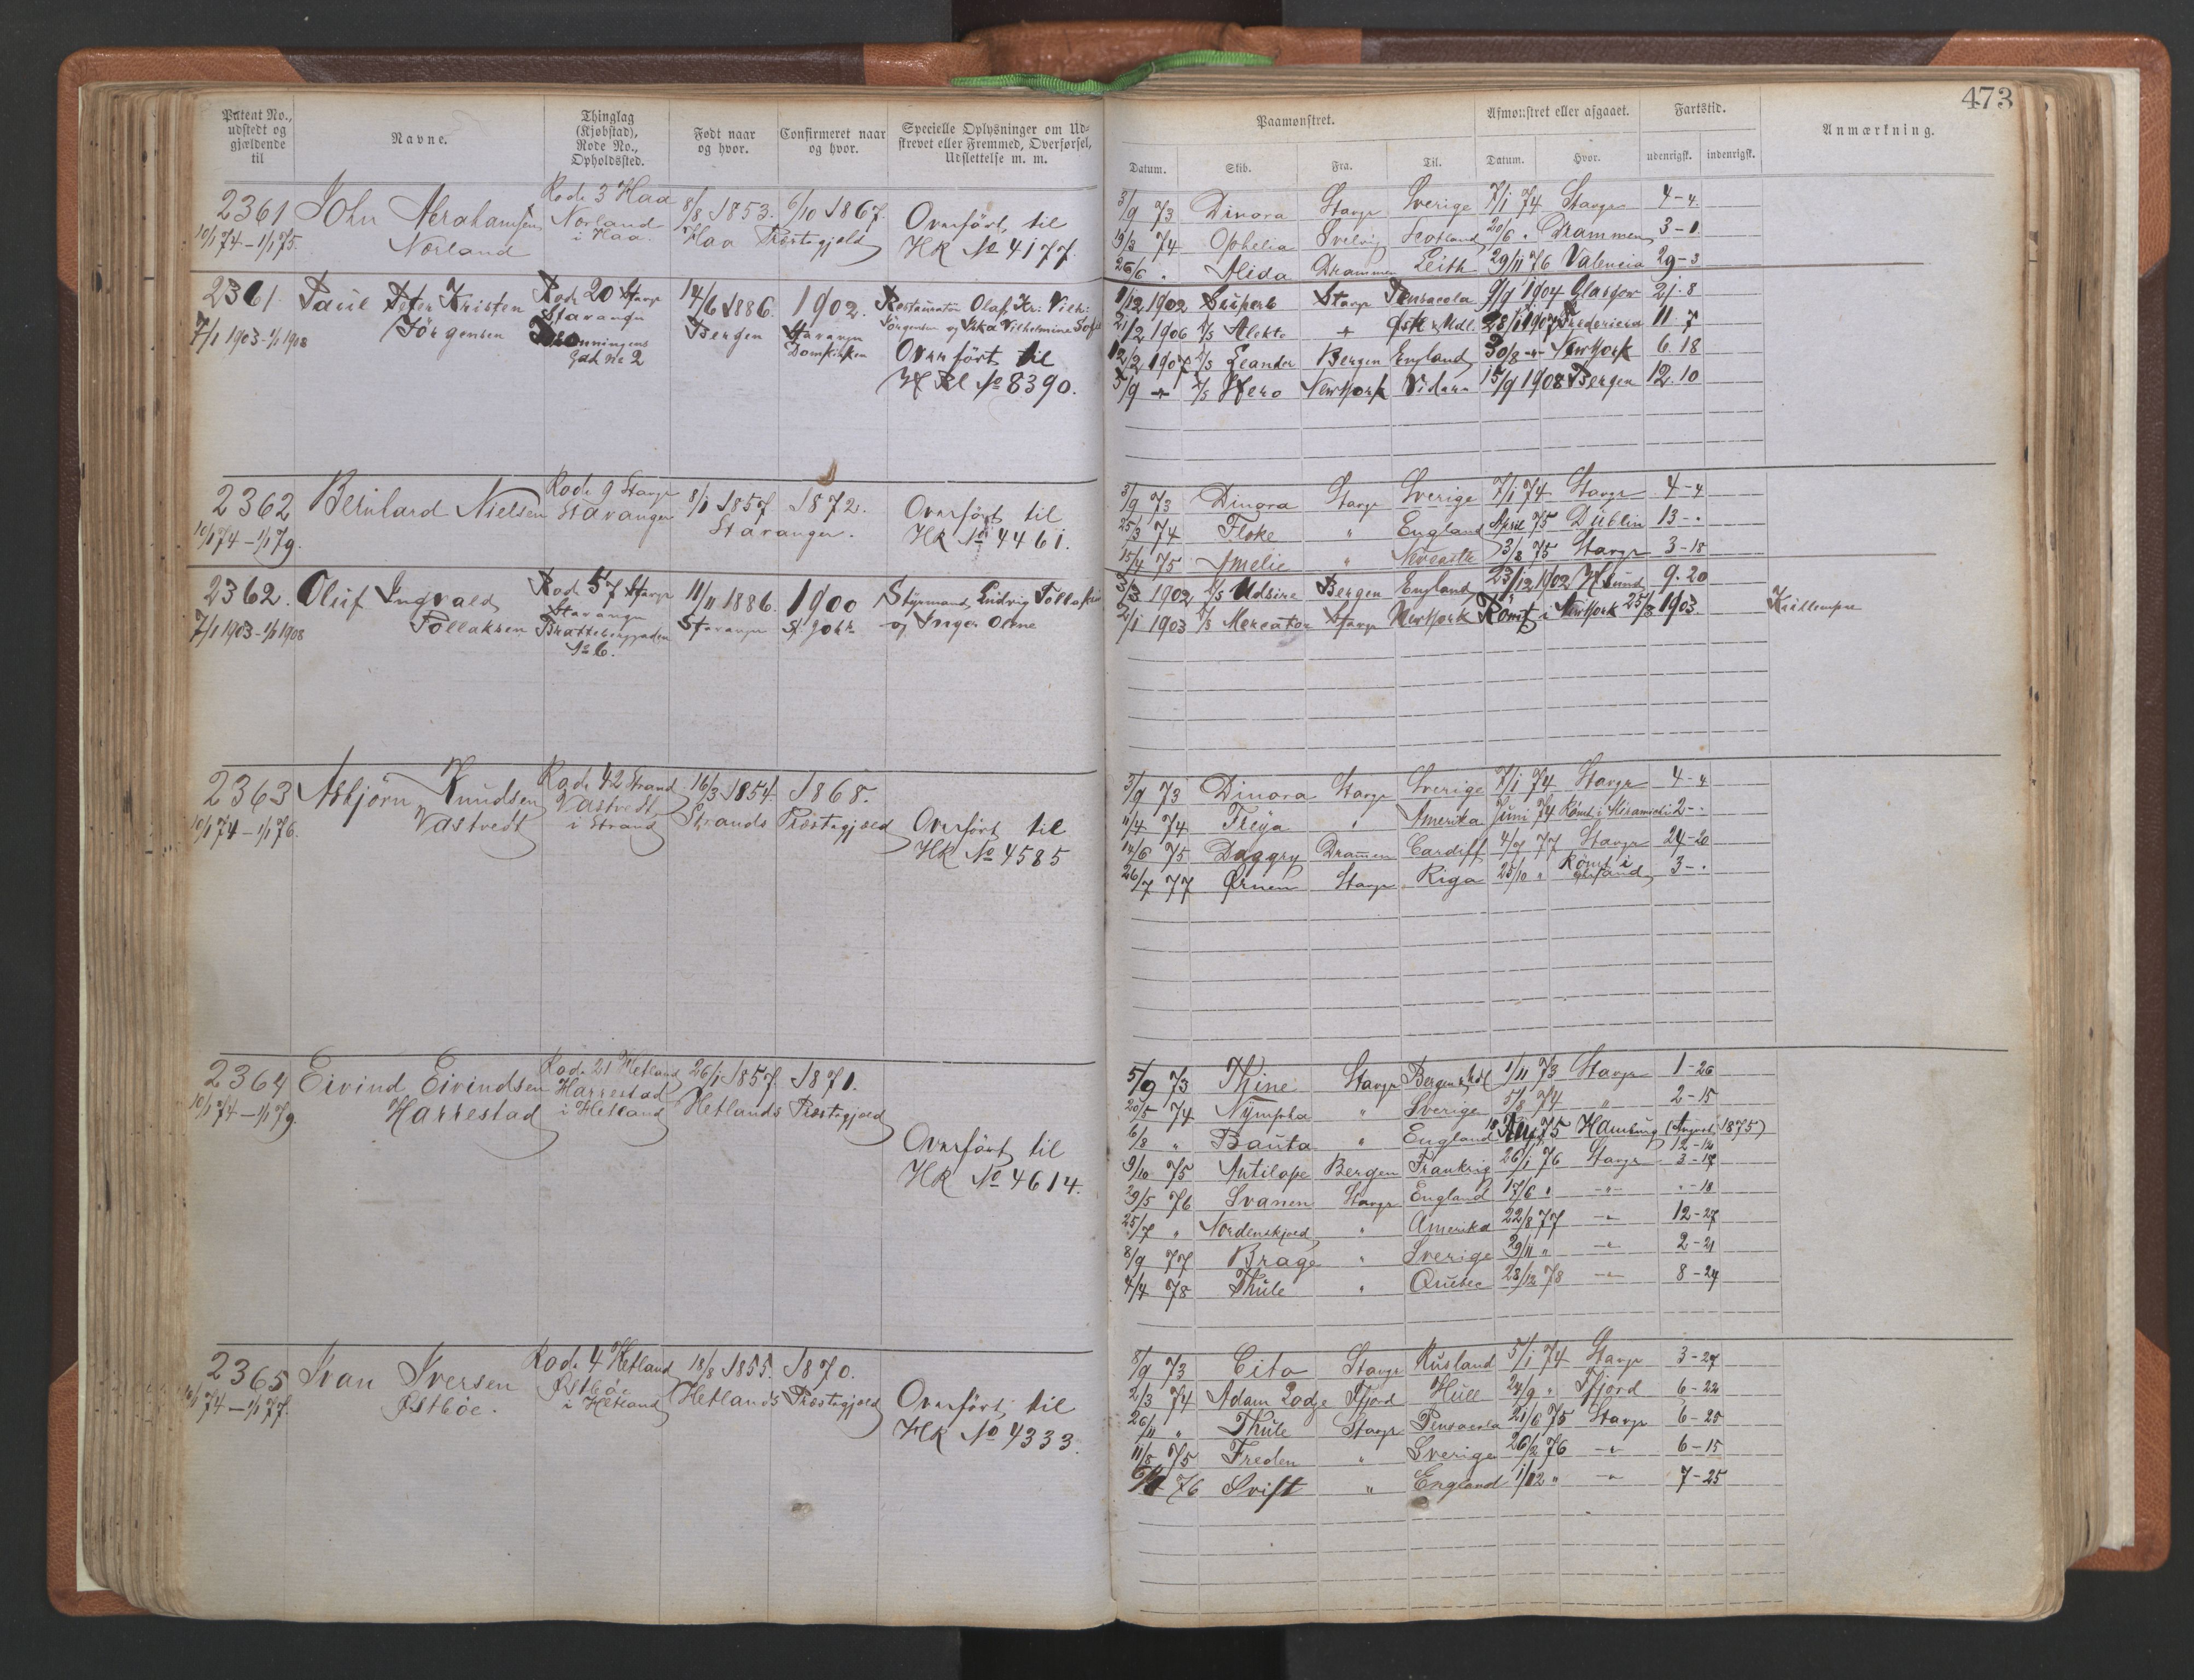 473
Patent No., udstedt og gjældende til
Navne.
Thinglag (Kjøbstad), Rode No., Opholdssted.
Født naar og hvor.
Confirmeret naar og hvor.
Specielle Oplysninger om Udskrevet eller Fremmed, Overførsel, Udslettelse m. m.
Paamønstret.
Afmønstret eller afgaaet.
Fartstid.
Anmærkning.
Datum. Skib. Fra. Til. Datum. Hvor. udenrigsk. indenrigsk.
2361 John Abrahamsen Rode 3 Haa 8/8 1853. 6/10 1867.
10/1 74 – 1/1 75. Norland Norland i Haa. Haa Præstegjeld
Overført til
HR No 4177.
3/9 73 Dinora Stavgr Sverige 7/1 74 Stavgr 4-4.
74 Ophelia Svelvig Scotland 20/6 " Drammen 3-1
26/6 " Alida Drammen Leith 29/11 76 Valencia 29-3
2361. Paul Peter Kristen Rode 20 Stavgr 14/6 1886. 1902.
7/1 1903 - 1/1 1908 Jörgensen Stavanger Bergen Stavanger Domkirken
gade No 2
Restauratör Olaf Kr: Vilh:
Jörgensen og Vilhelmine
Overført til
HRl No 8390.
1/12 1902 Superb Stavgr Pensacola 9/9 1904 Glasgow 21. 8
21/2 1906 Alekto " Östl. Mdl. 28/1 1907 Fredericia 11. 7
12/2 1907 Leander Bergen England 30/8 " NewYork 6. 18
5/9 " Hero NewYork Vidare 15/9 1908 Bergen 12. 10
2362 Bernhard Nielsen Rode 9 Stavgr 8/1 1857 1872.
10/1 74 – 1/1 79. Stavanger Stavanger.
Overført til
HR No 4461.
3/9 73 Dinora Stavgr Sverige 7/1 74 Stavgr 4-4
25/3 74 Floke " England April 75 Dublin 13-.
15/4 75 Amelie " Newcastle 3/8 75 Stavgr 3-18
2362. Oluf Ingvald Rode 57 Stavgr 11/11 1886. 1900
7/1 1903 - 1/1 1908 Tollaksen Stavanger Stavanger St. Joh.
No 6.
Styrmand Ludvig Tollaksen
og Inger Oline
3/3 1902 Udsire Bergen England 23/12 1902 9. 20
2/1 1903 Mercator Stavgr NewYork Römt i NewYork 25/3 1903.
2363 Asbjörn Knudsen Rode 42 Strand 16/3 1854 1868.
10/1 74 – 1/1 76. Vastvedt Vastvedt i Strand Strands Præstegjeld
Overført til
HR No 4585
3/9 73 Dinora Stavgr Sverige 7/1 74 Stavgr 4-4
11/4 74 Freya " Amerika Juni 74 Römt i Miramichi 2-.
14/6 75 Daggry Dramen Cardiff 77 Stavgr 24-20
26/7 77 Ørnen Stavgr Riga 25/10 " Römt i 3-.
2364 Eivind Eivindsen Rode 21 Hetland 26/1 1857 1871.
10/1 74 – 1/1 79. Harrestad Harrestad i Hetland Hetlands Præstegjeld
Overført til
HR No 4614.
5/9 73 Thine Stavgr Bergen 1/11 73 Stavgr 1-26
20/5 74 Nympha " Sverige 5/8 74 " 2-15
6/8 " Bauta " England 75 Hamburg (August 1875) 12-14
9/10 75 Antilope Bergen Frankrig 26/1 76 Stavgr 3-17
29/5 76 Svanen Stavgr England 17/6 " " "-18
25/7 " Nordenskjold " Amerika 22/8 77 " 12-27
8/9 77 Brage " Sverige 29/11 " " 2-21
4/4 78 Thule " Quebec 28/12 78 " 8-24
2365 Ivar Iversen Rode 4 Hetland 18/8 1855. 1870.
10/1 74 – 1/1 77. Østböe. Østböe i Hetland Hetlands Præstegjeld
Overført til
HR No 4333.
8/9 73 Cito Stavgr Rusland 5/1 74 Stavgr 3-27
2/3 74 Adam Lodge Ffjord Hull 24/9 " Ffjord 6-22
26/11 " Thule Stavgr Pensacola 21/6 75 Stavgr 6-25
11/8 75 Freden " Sverige 26/2 76 " 6-15
76 Svift " England 1/12 " " 7-25